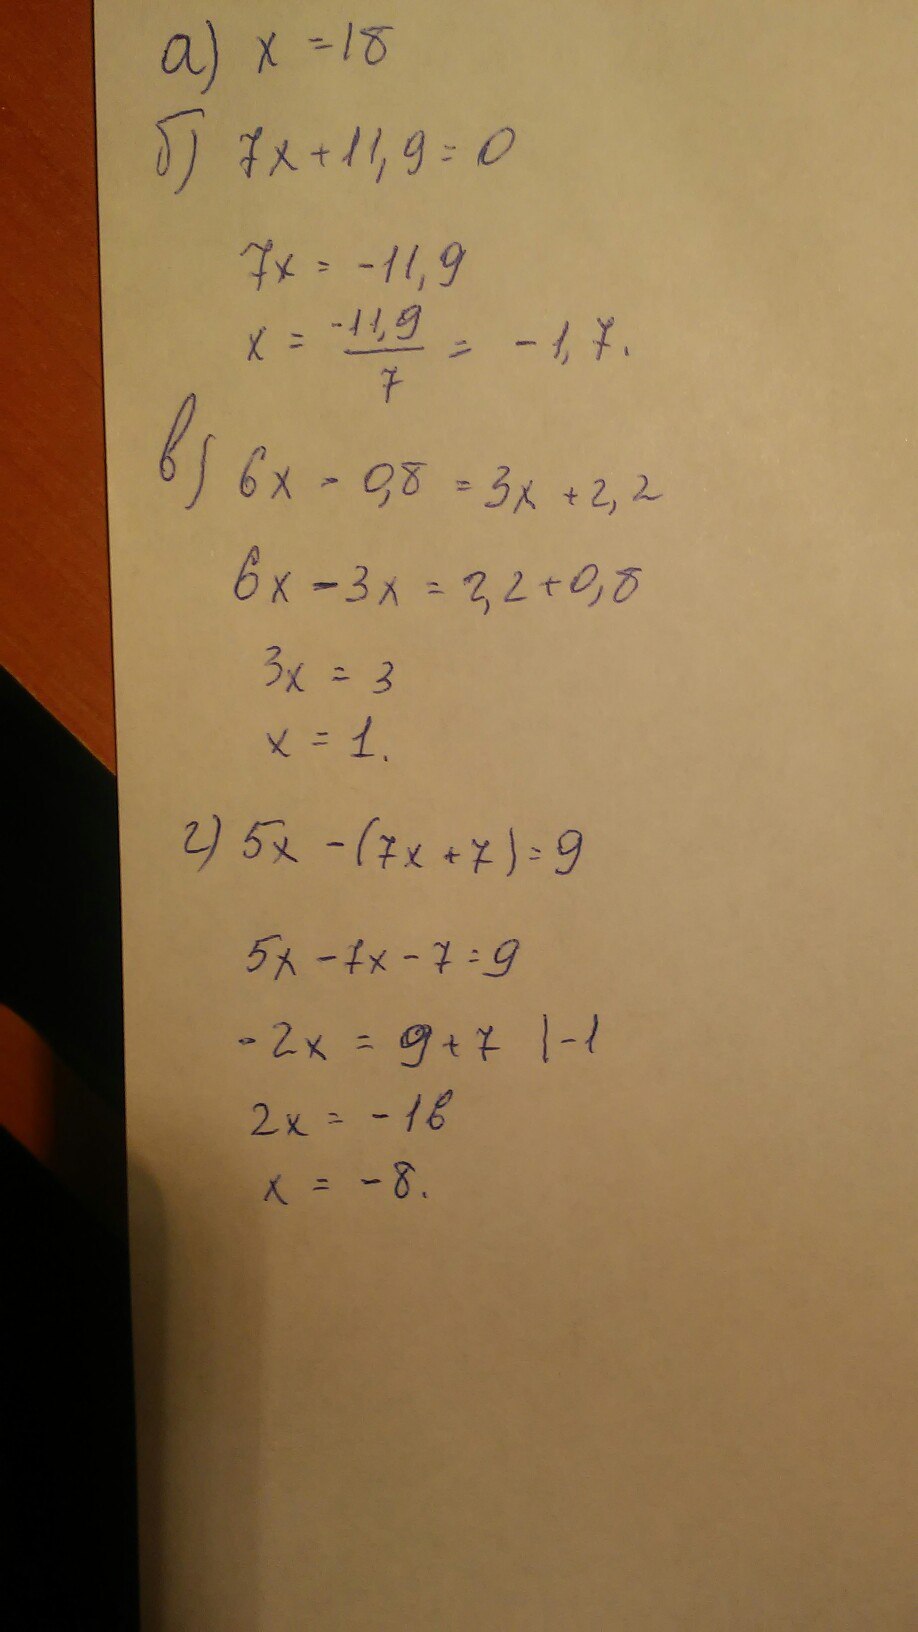 а) x = 18
б) 7x + 11,9 = 0
7x = -11,9
x = -11,9/7 = -1,7.
в) 6x - 0,8 = 3x + 2,2
6x - 3x = 2,2 + 0,8
3x = 3
x = 1.
г) 5x - (7x + 7) = 9
5x - 7x - 7 = 9
-2x = 9 + 7 | -1
2x = -16
x = -8.